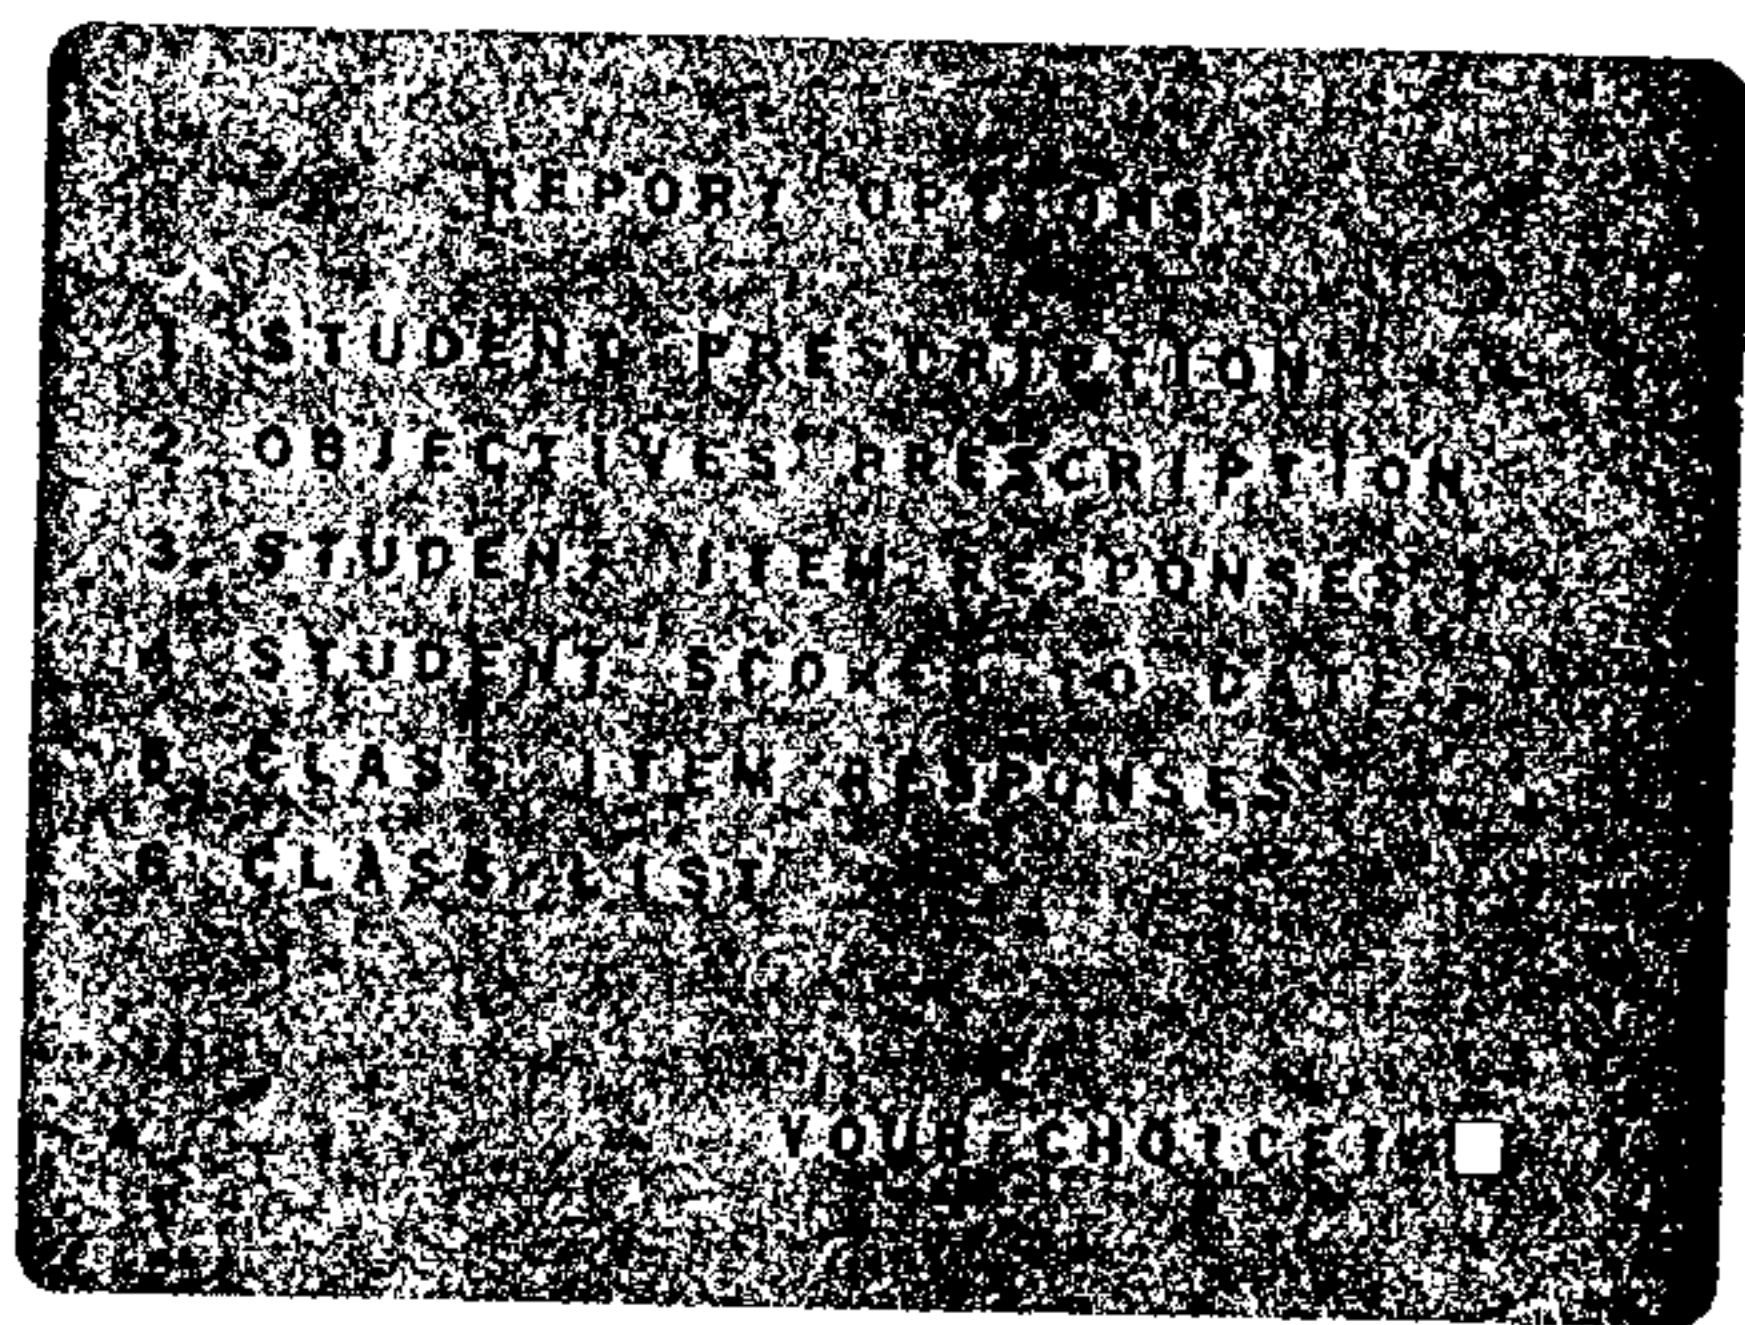 REPORT OPTIONS
1. STUDENT PRESCRIPTION
2. OBJECTIVES PRESCRIPTION
3. STUDENT ITEM RESPONSES
4. STUDENT SCORES TO DATE
5. CLASS ITEM RESPONSES
6. CLASS LIST
YOUR CHOICE?